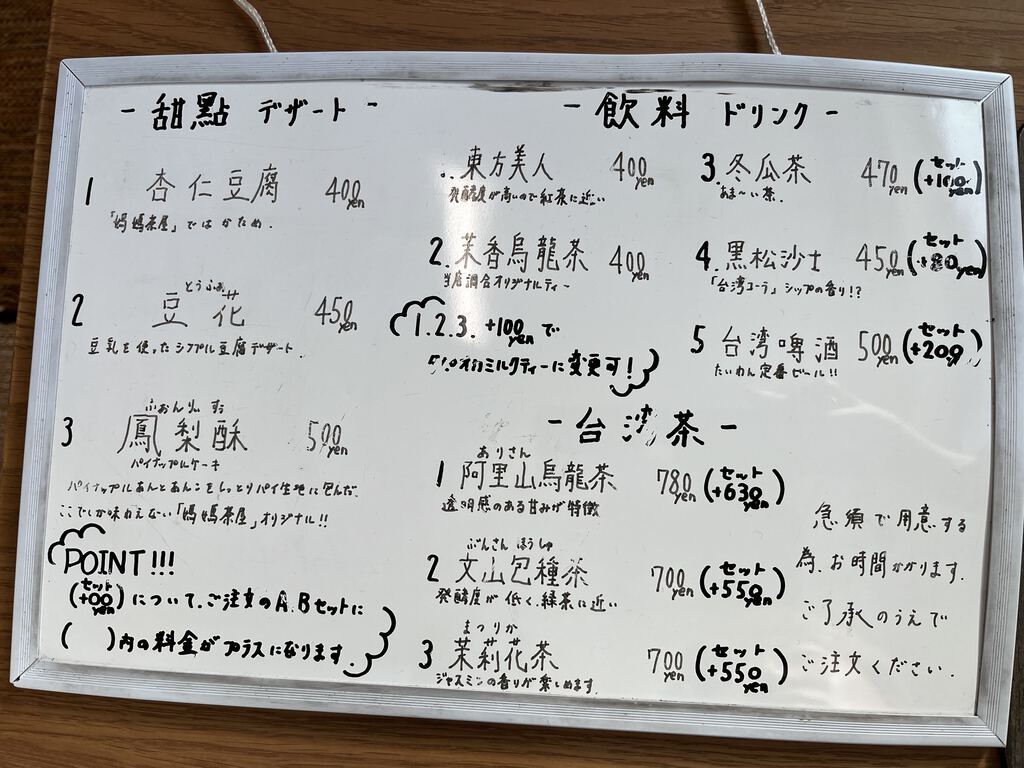 - 甜點 デザート -
1 杏仁豆腐 400yen
「媽媽茶屋」ではかため.
とうふぁ
2 豆花 450yen
豆乳を使ったシンプル豆腐デザート.
ふぉんりぃすぅ
3 鳳梨酥 500yen
パイナップルケーキ
パイナップルあんとあんこをしっとりパイ生地に包んだ.
ここでしか味わえない「媽媽茶屋」オリジナル!!
POINT!!!
(セット+00yen)について、ご注文のA.Bセットに
( )内の料金がプラスになります.
- 飲料 ドリンク -
東方美人 400yen
発酵度が高いので紅茶に近い
2. 茉香烏龍茶 400yen
当店調合オリジナルティー
1.2.3. +100yenで
ミルクティーに変更可!
3 冬瓜茶 470yen (セット+100yen)
あま〜い茶.
4. 黒松沙士 450yen (セット yen)
「台湾コーラ」シップの香り!?
5 台湾啤酒 500yen (セット+200)
たいわん定番ビール!!
- 台湾茶 -
ありさん
1 阿里山烏龍茶 780yen (セット+630yen)
透明感のある甘みが特徴
ぶんさんほうしゅ
2 文山包種茶 700yen (セット+550yen)
発酵度が低く、緑茶に近い
まつりか
3 茉莉花茶 700yen (セット+550yen)
ジャスミンの香りが楽しめます.
急須で用意する
為、お時間かかります.
ご了承のうえで
ご注文ください.